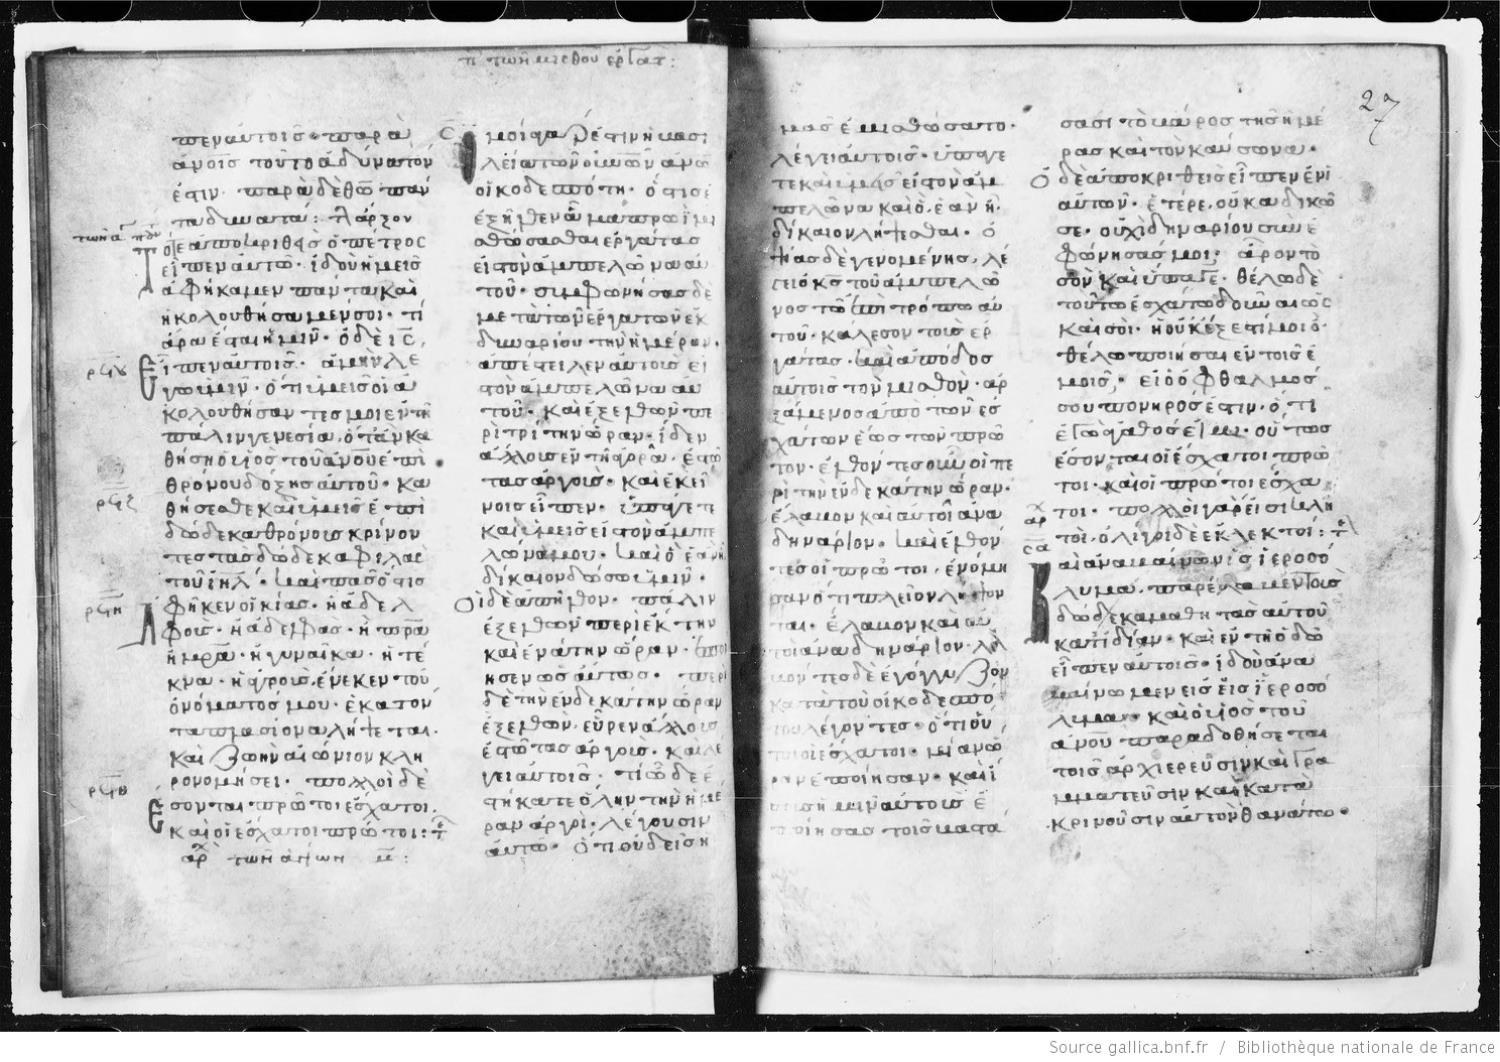 π τῶν μισθου εργατ:
πεν αυτοῖς· παρὰ
ἀνοις τοῦτο ἀδύνατόν
ἐστιν· παρὰ δὲ θῶ παν
τα δυνατά:
Τότε ἀποκριθεὶς ὁ πέτρος
εἶπεν αὐτῶ· ἰδοὺ ἡμεῖς
ἀφήκαμεν πάντα καὶ
ἠκολουθήσαμεν σοι· τί
ἄρα ἔσται ἡμῖν· ὁ δὲ ις
Εἶπεν αὐτοῖς· ἀμὴν λέ
γω ὑμῖν· ὅτι ὑμεῖς οἱ ἀ
κολουθήσαντές μοι ἐν τῆ
παλινγενεσία, ὅταν κα
θήση ὁ υἱὸς τοῦ ἀνου ἐπὶ
θρόνου δόξης αὐτοῦ· κα
θήσεσθε καὶ ὑμεῖς ἐπὶ
δώδεκα θρόνους κρίνον
τες τὰς δώδεκα φυλὰς
τοῦ ιηλ· καὶ πᾶς ὅστις
ἀφῆκεν οἰκίας· ἢ ἀδελ
φούς· ἢ ἀδελφάς· ἢ πρα
ἢ μρα· ἢ γυναῖκα· ἢ τέ
κνα· ἢ ἀγρούς, ἕνεκεν τοῦ
ὀνόματός μου· ἑκατον
ταπλασίονα λήψεται·
καὶ ζωὴν αἰώνιον κλη
ρονομήσει· πολλοὶ δὲ
Ἔσονται πρῶτοι ἔσχατοι·
καὶ οἱ ἔσχατοι πρῶτοι:
Ὁμοία γάρ ἐστιν ἡ βασι
λεία τῶν οὐνῶν ἀνω
οἰκοδεσπότη· ὅστις
ἐξῆλθεν ἅμα πρωῒ μι
σθώσασθαι ἐργάτας
εἰς τὸν ἀμπελῶνα αὐ
τοῦ· συμφωνήσας δὲ
μετὰ τῶν ἐργατῶν ἐκ
δηναρίου τὴν ἡμέραν·
ἀπέστειλεν αὐτοὺς εἰ
ς τὸν ἀμπελῶνα αὐ
τοῦ· καὶ ἐξελθὼν πε
ρὶ τρίτην ὥραν· ἴδεν
ἄλλους ἐν τῆ ἀγορᾶ· ἑστῶ
τας ἀργούς· καὶ ἐκεί
νοις εἶπεν· ὑπάγετε
καὶ ὑμεῖς εἰς τὸν ἀμπε
λῶνά μου· καὶ ὃ ἐὰν ἦ
δίκαιον δώσω ὑμῖν·
Οἱ δὲ ἀπῆλθον· πάλιν
ἐξελθὼν περὶ ἕκτην
καὶ ἐνάτην ὥραν· ἐποί
ησεν ὡσαύτως· περὶ
δὲ τὴν ἑνδεκάτην ὥραν
ἐξελθὼν, εὗρεν ἄλλους
ἑστῶτας ἀργούς· καὶ λέ
γει αὐτοῖς· τί ὧδε ἑ
στήκατε ὅλην τὴν ἡμέ
ραν ἀργοί· λέγουσιν
αὐτῶ· ὅτι οὐδεὶς ἡ
μᾶς ἐμισθώσατο·
λέγει αὐτοῖς· ὑπάγε
τε καὶ ὑμεῖς εἰς τὸν ἀμ
πελῶνα καὶ ὃ ἐὰν ἦ
δίκαιον λήψεσθαι· ὀ
ψίας δὲ γενομένης, λέ
γει ὁ κς τοῦ ἀμπελῶ
νος τῶ ἐπιτρόπω αὐ
τοῦ· κάλεσον τοὺς ἐρ
γάτας· καὶ ἀπόδος
αὐτοῖς τὸν μισθόν· ἀρ
ξάμενος ἀπὸ τῶν ἐσ
χάτων ἕως τῶν πρώ
των· ἐλθόντες οὖν οἱ πε
ρὶ τὴν ἑνδεκάτην ὥραν·
ἔλαβον καὶ αὐτοὶ ἀνὰ
δηνάριον· καὶ ἐλθόν
τες οἱ πρῶτοι, ἐνόμι
σαν ὅτι πλεῖον λήψον
ται· ἔλαβον καὶ αὐ
τοὶ ἀνὰ δηνάριον· λα
βόντες δὲ ἐγόγγυζον
κατὰ τοῦ οἰκοδεσπό
του λέγοντες· ὅτι οὗ
τοι οἱ ἔσχατοι· μίαν ὥ
ραν ἐποίησαν· καὶ ἴ
σους ἡμῖν αὐτοὺς ἐ
ποίησας τοῖς βαστά
27
σασι τὸ βάρος τῆς ἡμέ
ρας καὶ τὸν καύσωνα·
Ὁ δὲ ἀποκριθεὶς εἶπεν ἑνὶ
αὐτῶν· ἑταῖρε, οὐκ ἀδικῶ
σε· οὐχὶ δηναρίου συνε
φώνησάς μοι· ἆρον τὸ
σὸν καὶ ὕπαγε· θέλω δὲ
τούτω ἐσχάτω δοῦναι ὡς
καὶ σοί· ἢ οὐκ ἔξεστί μοι ὃ
θέλω ποιῆσαι ἐν τοῖς ἐ
μοῖς· εἰ ὁ ὀφθαλμός
σου πονηρός ἐστιν· ὅτι
ἐγὼ ἀγαθός εἰμι· οὕτως
ἔσονται οἱ ἔσχατοι πρῶ
τοι· καὶ οἱ πρῶτοι ἔσχα
τοι· πολλοὶ γάρ εἰσι κλη
τοί· ὀλίγοι δὲ ἐκλεκτοί:
Καὶ ἀναβαίνων ὁ ις εἰς ἱεροσό
λυμα· παρέλαβεν τοὺς
δώδεκα μαθητὰς αὐτοῦ
κατιδίαν· καὶ ἐν τῆ ὁδῶ
εἶπεν αὐτοῖς· ἰδοὺ ἀνα
βαίνομεν εἰς ἱεροσό
λυμα· καὶ ὁ υἱὸς τοῦ
ἀνου παραδοθήσεται
τοῖς ἀρχιερεῦσιν καὶ γρα
μματεῦσιν καὶ κατα
κρινοῦσιν αὐτὸν θανάτω·
Source gallica.bnf.fr / Bibliothèque nationale de France